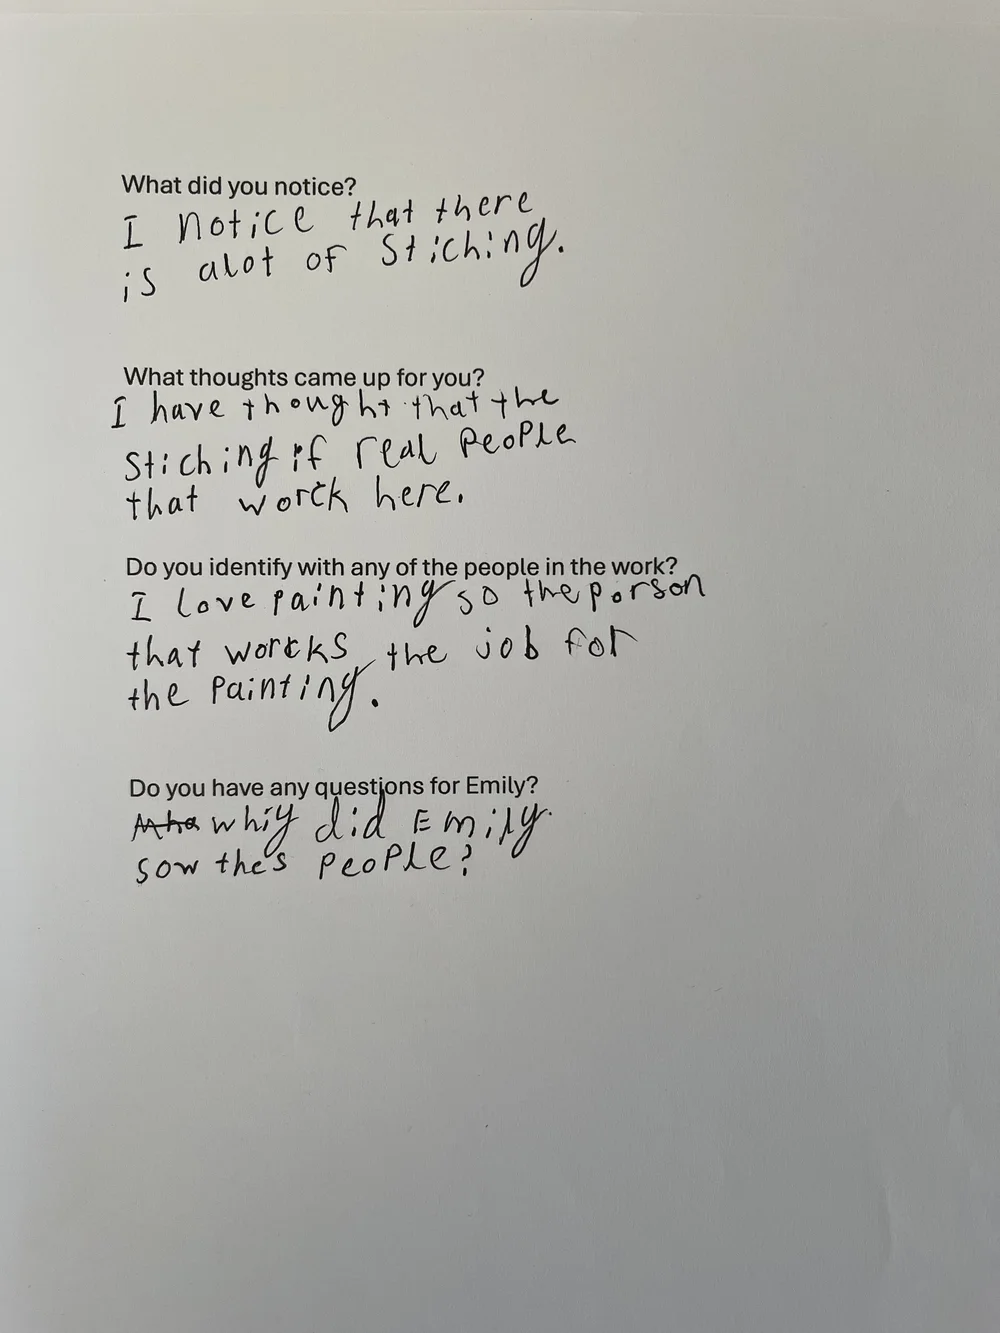 What did you notice?
I notice that there
is alot of stiching.
What thoughts came up for you?
I have thought that the
stiching if real people
that worck here.
Do you identify with any of the people in the work?
I love painting so the porson
that worcks the job for
the painting.
Do you have any questions for Emily?
whiy did Emily
sow the's people?